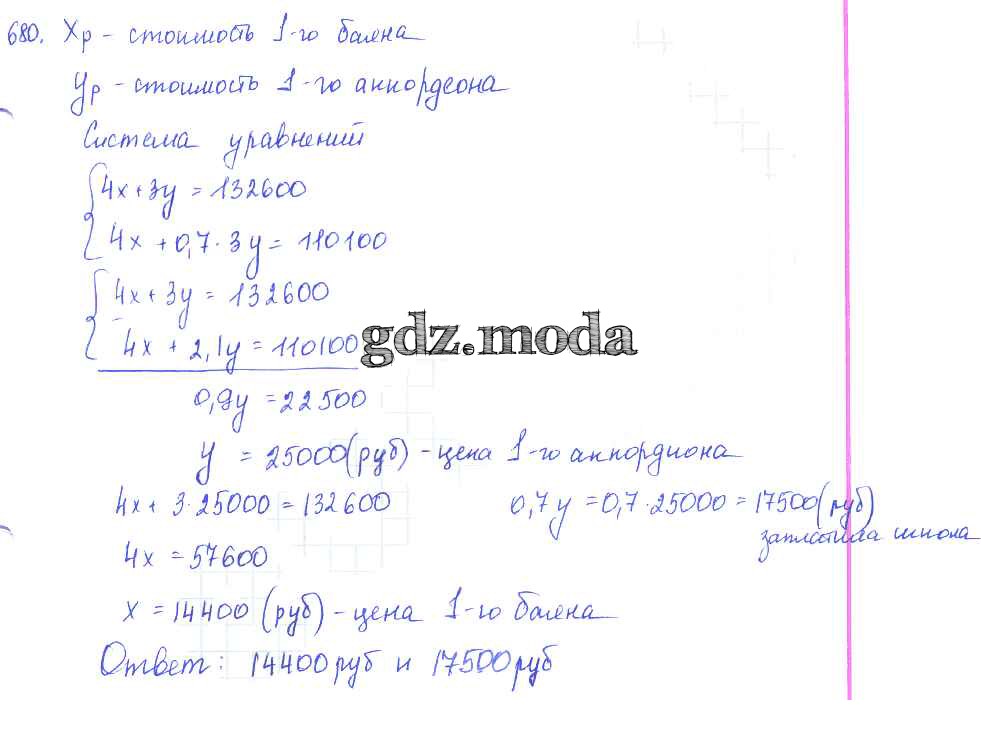 680. Xр - стоимость 1-го баяна
Yр - стоимость 1-го аккордеона
Система уравнений
4x + 3y = 132600
4x + 0,7 · 3y = 110100
4x + 3y = 132600
4x + 2,1y = 110100
gdz.moda
0,9y = 22500
y = 25000 (руб) - цена 1-го аккордиона
4x + 3·25000 = 132600
0,7y = 0,7·25000 = 17500 (руб)
заплатила школа
4x = 57600
x = 14400 (руб) - цена 1-го баяна
Ответ: 14400 руб и 17500 руб